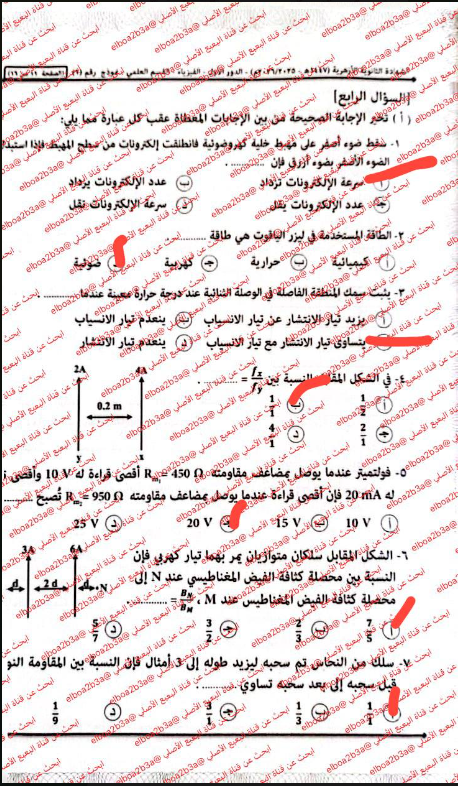 شهادة الثانوية الأزهرية (١٤٤٧هـ - ٢٠٢٥/٢٠٢٦م) - الدور الأول - الفيزياء - القسم العلمي - نموذج رقم
[السؤال الرابع]
( أ ) تخير الإجابة الصحيحة من بين الإجابات المعطاة عقب كل عبارة مما يلي:
١- سقط ضوء أصفر على مهبط خلية كهروضوئية فانطلقت إلكترونات من سطح المهبط فإذا استبدل
الضوء الأصفر بضوء أزرق فإن ..........
أ سرعة الإلكترونات تزداد ب عدد الإلكترونات يزداد
ج عدد الإلكترونات يقل د سرعة الإلكترونات تقل
٢- الطاقة المستخدمة في ليزر الياقوت هي طاقة ..........
أ كيميائية ب حرارية ج كهربية د ضوئية
٣- يثبت سمك المنطقة الفاصلة في الوصلة الثنائية عند درجة حرارة معينة عندما ..........
أ يزيد تيار الانتشار عن تيار الانسياب ب ينعدم تيار الانسياب
يتساوى تيار الانتشار مع تيار الانسياب د ينعدم تيار الانتشار
٤- في الشكل المقابل النسبة بين fx/fy = ..........
أ 1/2 ب 1/1
ج 2/1 د 4/1
2A 4A
0.2 m
y x
٥- فولتميتر عندما يوصل بمضاعف مقاومته Rm1 = 450 Ω أقصى قراءة له 10 V وأقصى
له 20 mA فإن أقصى قراءة عندما يوصل بمضاعف مقاومته Rm2 = 950 Ω تُصبح ..........
أ 10 V ب 15 V ج 20 V د 25 V
٦- الشكل المقابل سلكان متوازيان يمر بهما تيار كهربي فإن
النسبة بين محصلة كثافة الفيض المغناطيسي عند N إلى
محصلة كثافة الفيض المغناطيس عند M ، BN/BM = ..........
أ 7/5 ب 2/3 ج 3/2 د 5/7
3A 6A
d 2 d d N
٧- سلك من النحاس تم سحبه ليزيد طوله إلى 3 أمثال فإن النسبة بين المقاومة
قبل سحبه إلى بعد سحبه تساوي ..........
أ 1/1 ب 1/3 ج 3/1 د 1/9
ابحث عن قناة البعبع الأصلي @elboa2b3a